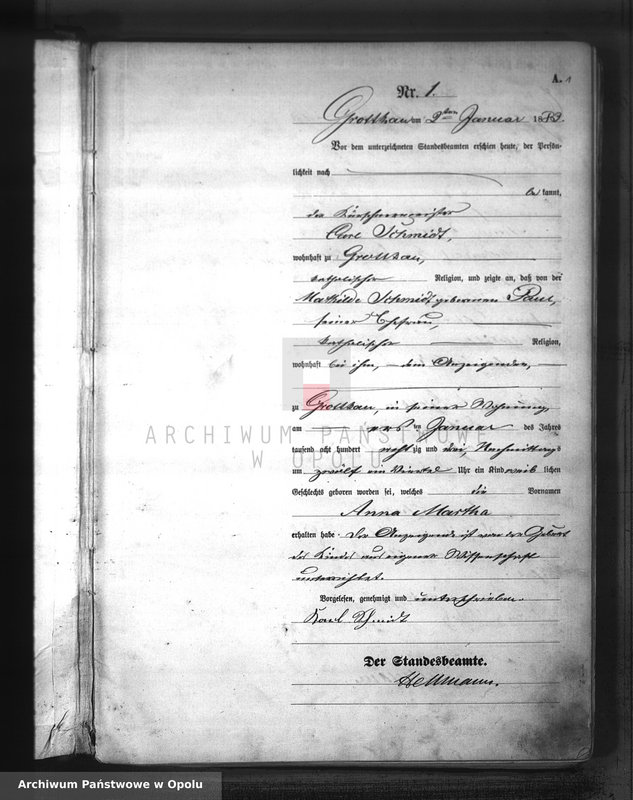 A. 1
Nr. 1.
Grottkau am 2ten Januar 1883.
Vor dem unterzeichneten Standesbeamten erschien heute, der Persön-
lichkeit nach
be kannt,
der Kürschnermeister
Carl Schmidt,
wohnhaft zu Grottkau,
katholischer Religion, und zeigte an, daß von der
Mathilde Schmidt, geborenen Paul,
seiner Ehefrau,
katholischer Religion,
wohnhaft bei ihm, dem Anzeigenden,
zu Grottkau, in seiner Wohnung,
am ersten Januar des Jahres
tausend acht hundert achtzig und drei, Nachmittags
um zwölf ein Viertel Uhr ein Kind weib lichen
Geschlechts geboren worden sei, welches die Vornamen
Anna Martha
erhalten habe. Der Anzeigende ist von der Geburt
des Kindes aus eigener Wissenschaft
unterrichtet.
Vorgelesen, genehmigt und unterschrieben.
Karl Schmidt
Der Standesbeamte.
Hellmann.
ARCHIWUM PAŃSTWOWE
W OPOLU
Archiwum Państwowe w Opolu